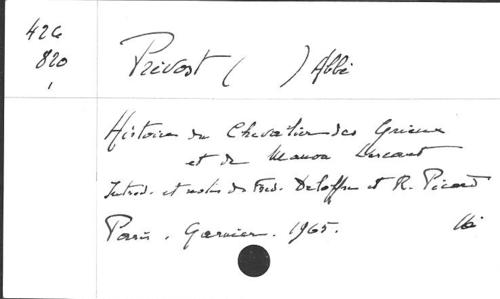 426
820
Prévost ( ) Abbé
Histoire du Chevalier des Grieux
et de Manon Lescaut
Introd. et notes de Fred. Deloffre et R. Picard
Paris. Garnier. 1965.